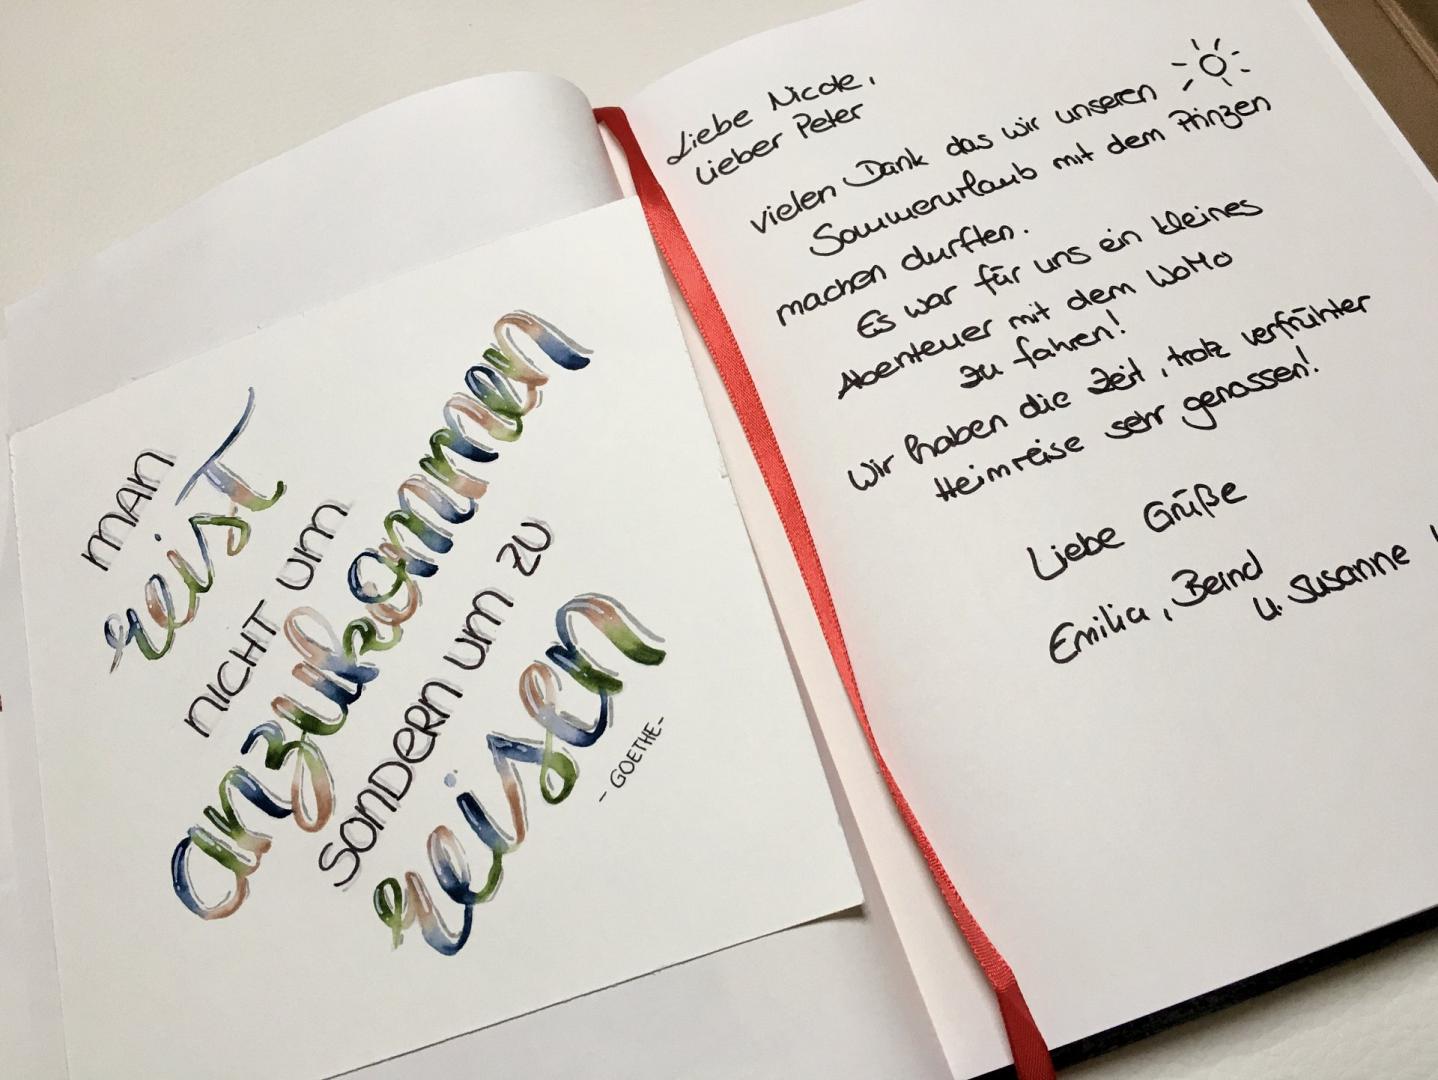 man
reist
nicht um
anzukommen
sondern um zu
reisen
- GOETHE -
Liebe Nicole,
Lieber Peter
vielen Dank das wir unseren
Sommerurlaub mit dem Prinzen
machen durften.
Es war für uns ein kleines
Abenteuer mit dem WoMo
zu fahren!
Wir haben die Zeit, trotz verfrühter
Heimreise sehr genossen!
Liebe Grüße
Emilia, Bernd
u. Susanne